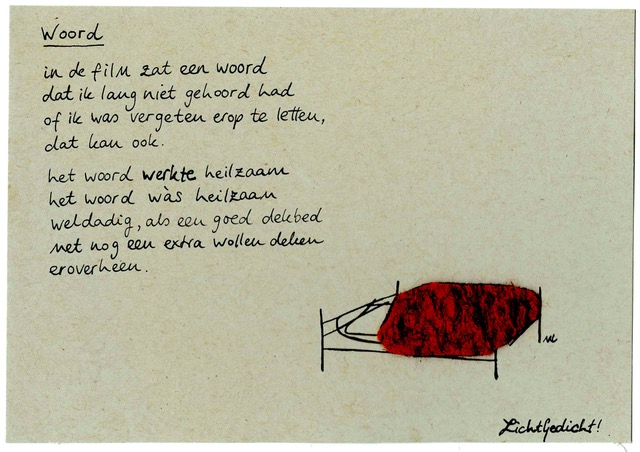 Woord
in de film zat een woord
dat ik lang niet gehoord had
of ik was vergeten erop te letten,
dat kan ook.
het woord werkte heilzaam
het woord wàs heilzaam
weldadig, als een goed dekbed
met nog een extra wollen deken
eroverheen.
LichtGedicht!